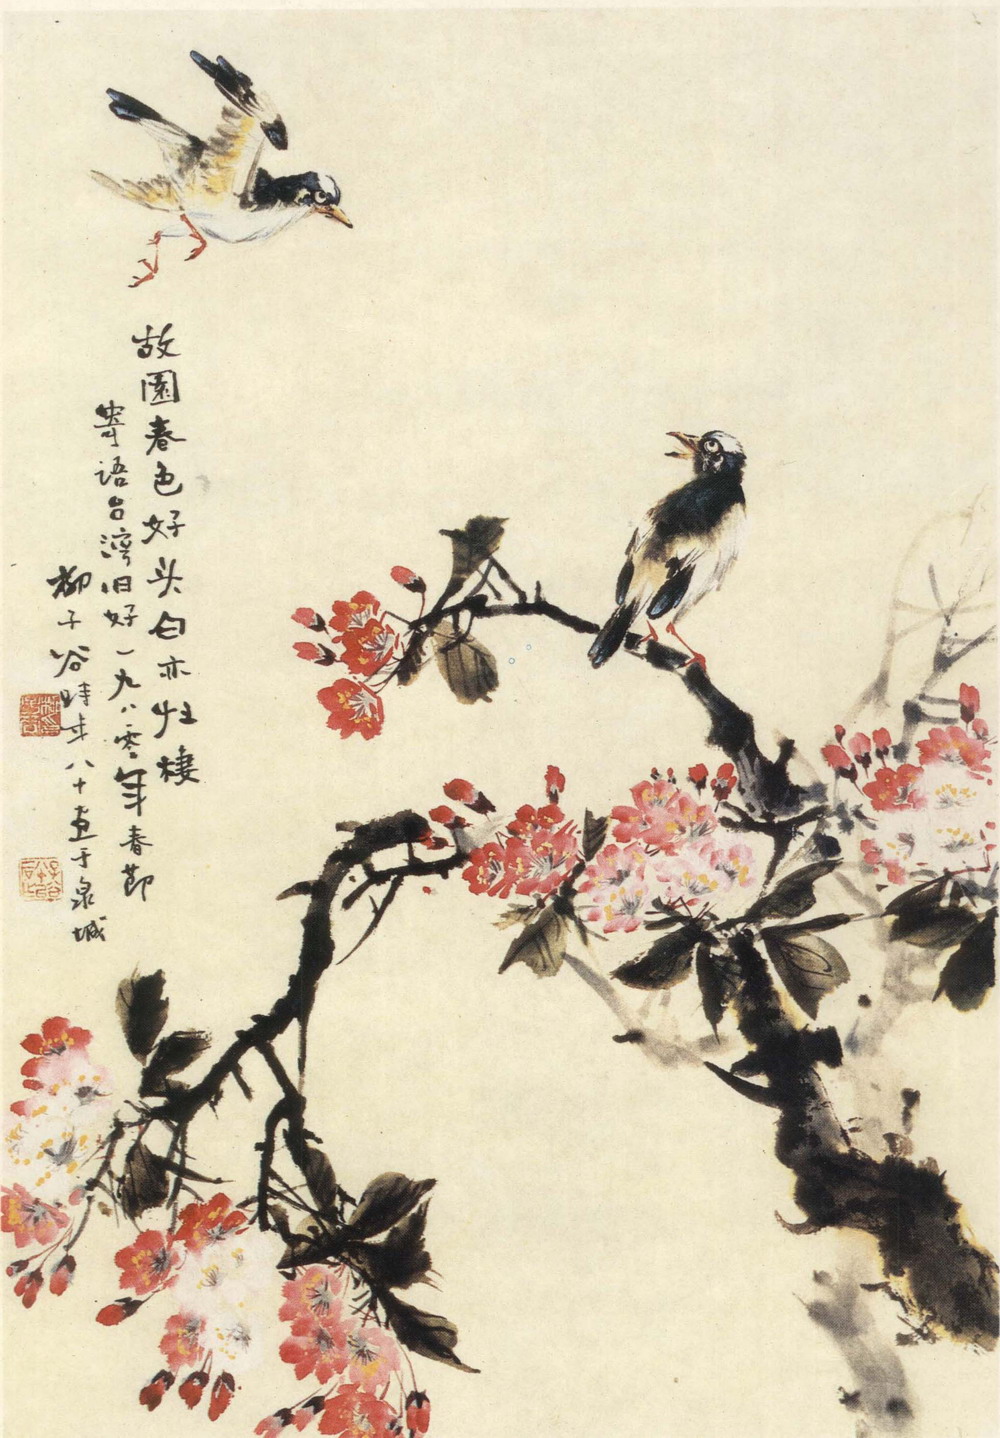 故園春色好头白亦归棲
寄语台湾旧好一九八零年春節
柳子谷時年八十画于泉城